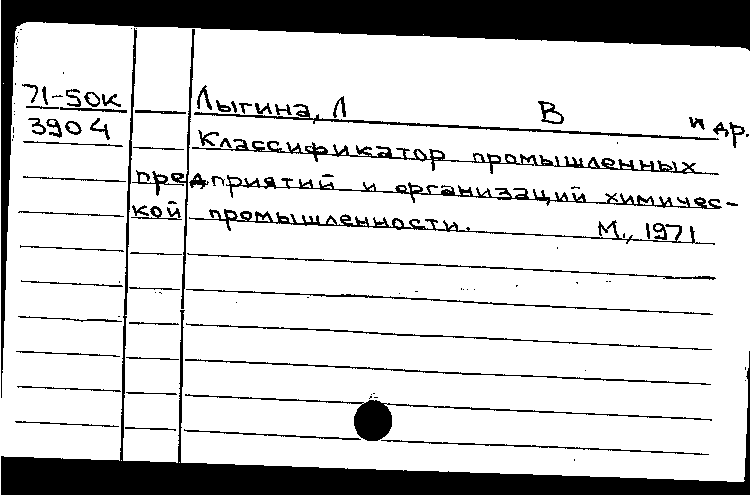 71-50К Лыгина, Л В и др.
3904 Классификатор промышленных
предприятий и организаций химичес-
кой промышленности. М., 1971